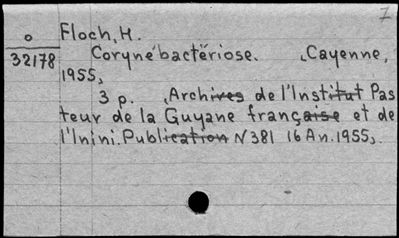 7
o Floch, H.
32178 Corynébactériose. Cayenne,
1955,
3 p. Archives de l'Institut Pas
teur de la Guyane française et de
l'Inini. Publication N381 16 An. 1955,.